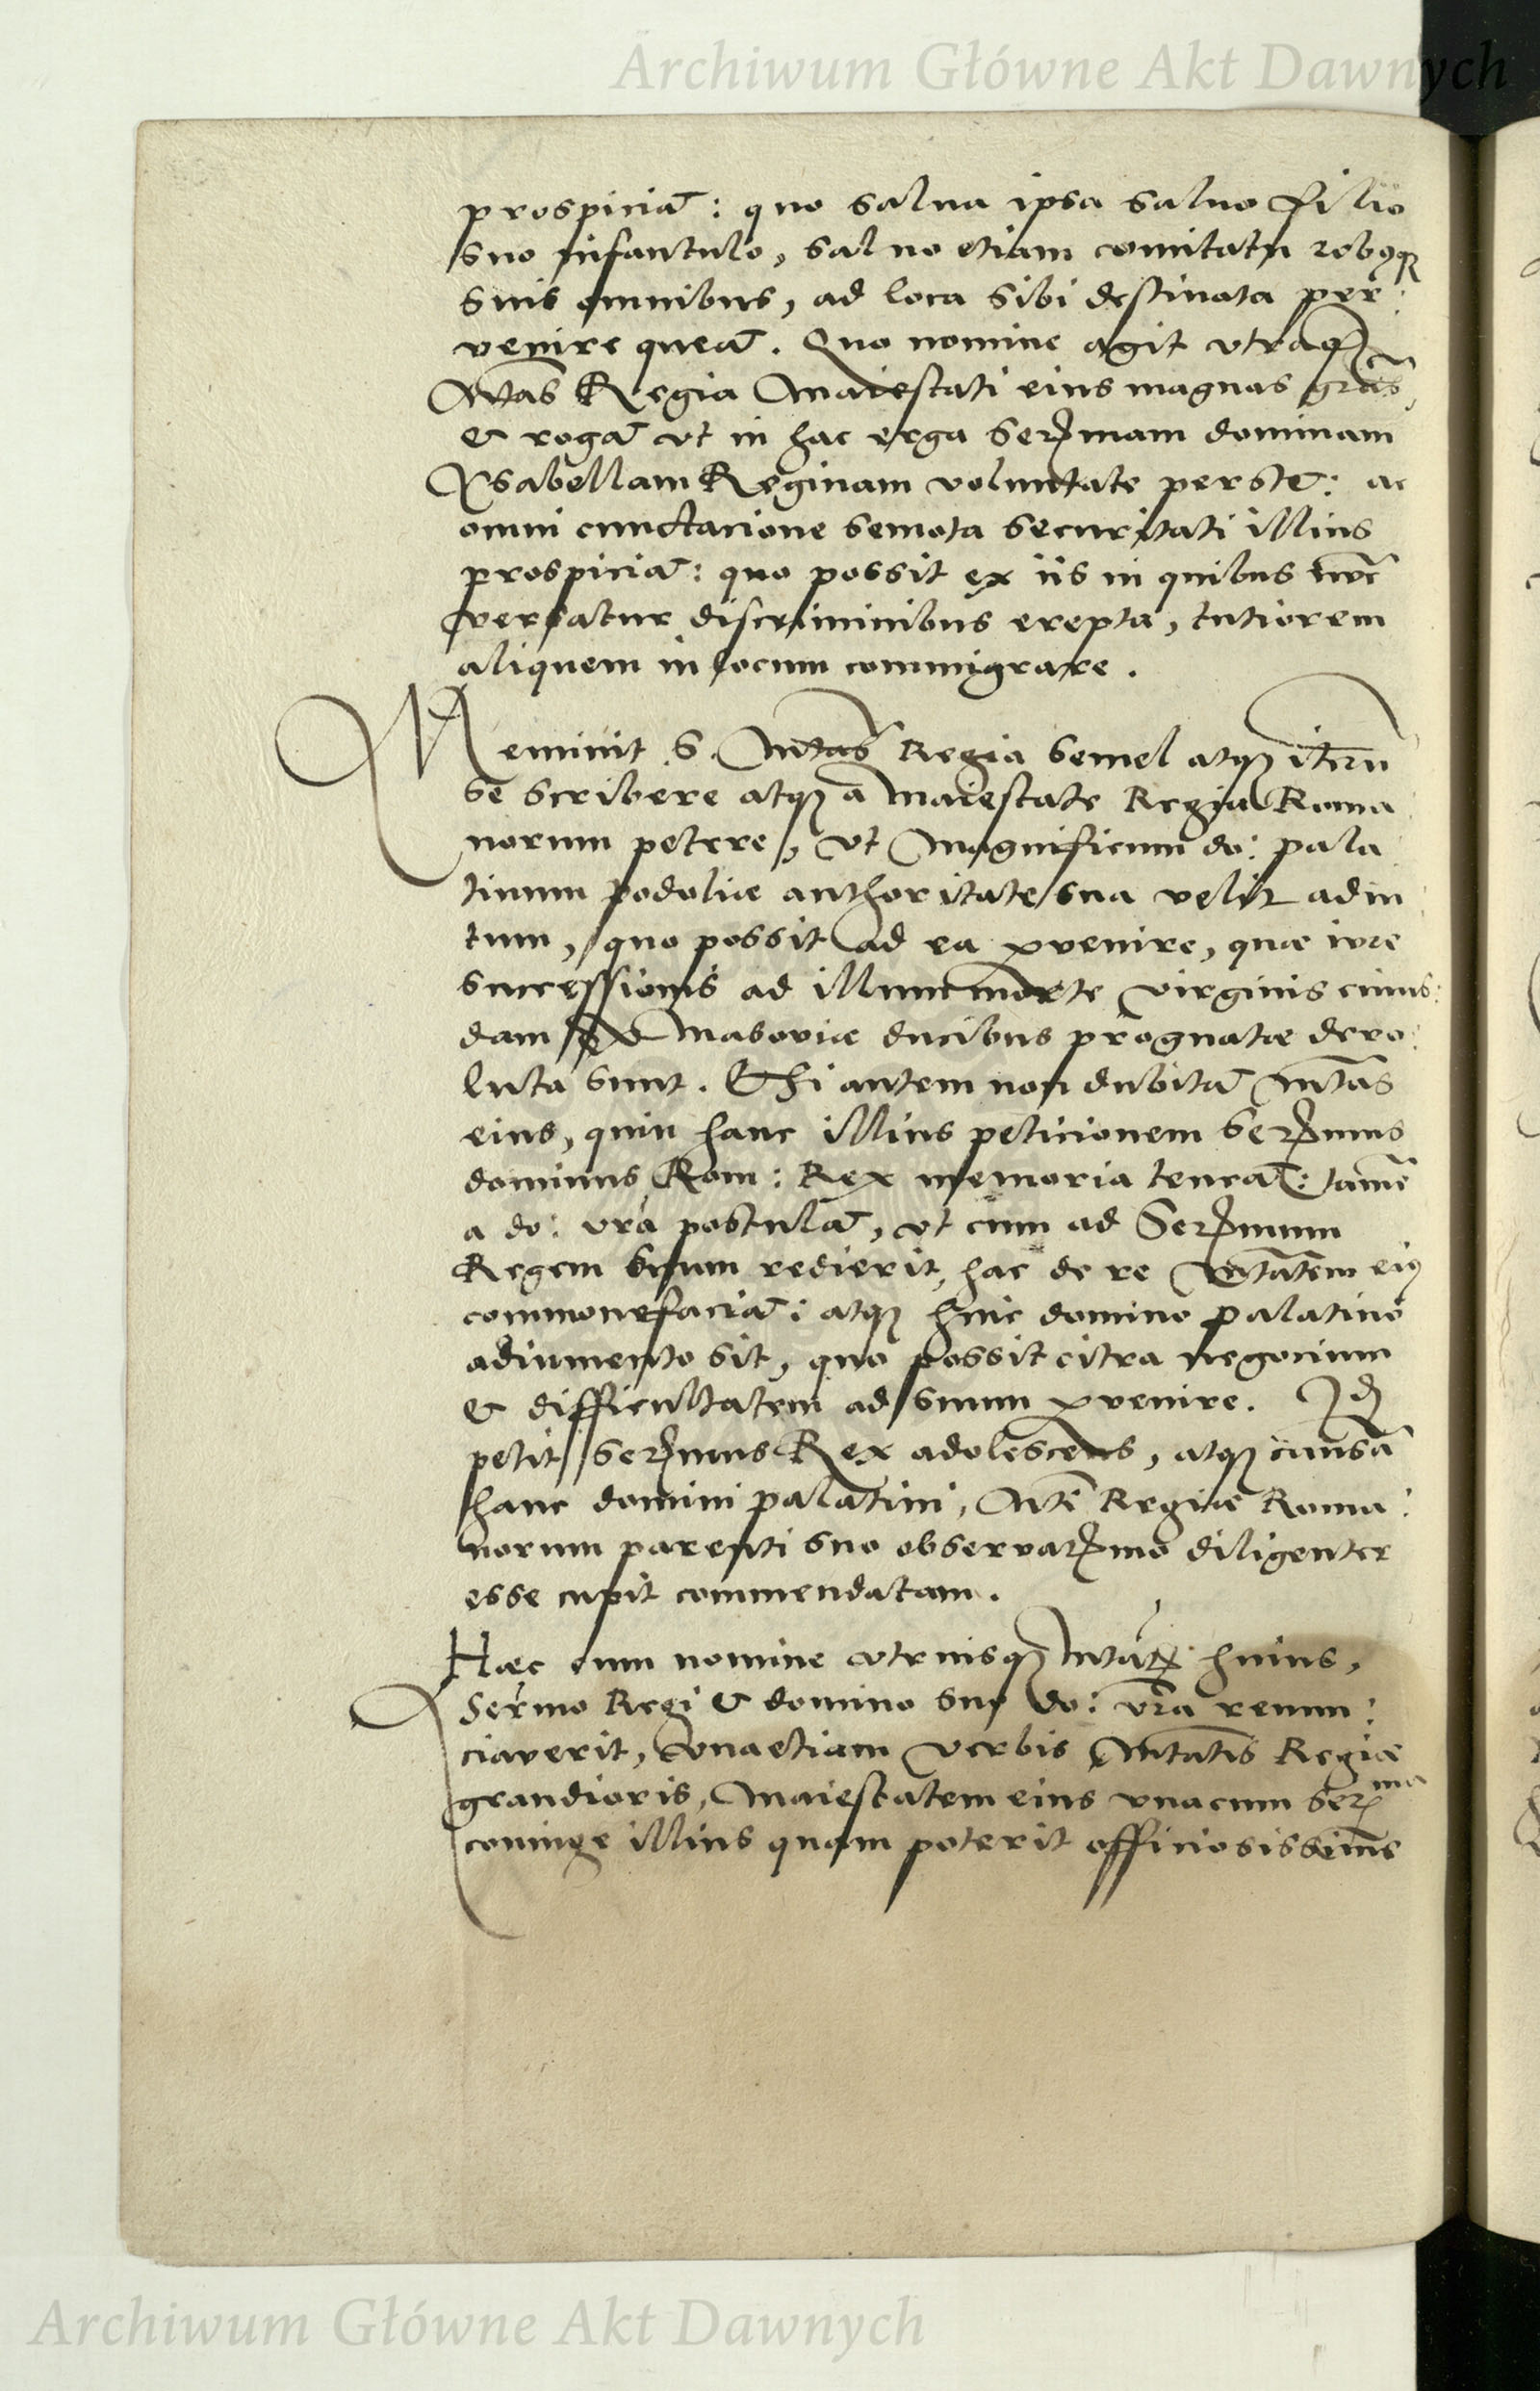 Archiwum Główne Akt Dawnych
prospiciat̄: quo salua ipsa saluo filio
suo infantulo, saluo etiam comitatu rebusqȝ
suis omnibus, ad loca sibi destinata per:
venire queat̄. Quo nomine agit vtraqȝ
Mtas Regia Maiestati eius magnas gra͠s,
& rogat̄ vt in hac erga Serꝫmam dominam
Ysabellam Reginam voluntate perstet̄: ac
omni cunctacione semota securitati illius
prospiciat̄: quo possit ex iis in quibus nūc
versatur discriminibus erepta, tutiorem
aliquem in locum commigrare.
Meminit S. Mtas Regia semel atqȝ iterū
se scribere atqȝ a Maiestate Regia Roma
norum petere, vt Magnificum do: pala
tinum podoliæ authoritate sua velit adiu
tum, quo possit ad ea ꝑvenire, quæ iure
successionis ad illum morte virginis cuius:
dam Masoviæ ducibus prognatæ devo:
luta sunt. Etsi autem non dubitat̄ Mtas
eius, quin hanc illius peticionem Serꝫmus
dominus Rom: Rex memoria teneat̄: tamē
a do: vra postulat̄, vt cum ad Serꝫmum
Regem suum redierit, hac de re Mtatem eius
commonefaciat̄: atqȝ huic domino palatino
adiumento sit, quo possit citra negocium
& difficultatem ad suum ꝑvenire. Idꝫ
petit Serꝫmus Rex adolescens, atqȝ causā
hanc domini palatini, Mti Regiæ Roma:
norum parenti suo observaꝫmo diligenter
esse cupit commendatam.
Hæc cum nomine vtriusqȝ Mtatꝝ huius,
Sermo Regi & domino suo do: vra renun:
ciaverit, vna etiam verbis Mtatis Regiæ
grandioris, Maiestatem eius vna cum Serma
coniuge illius quam poterit officiosissime
Archiwum Główne Akt Dawnych